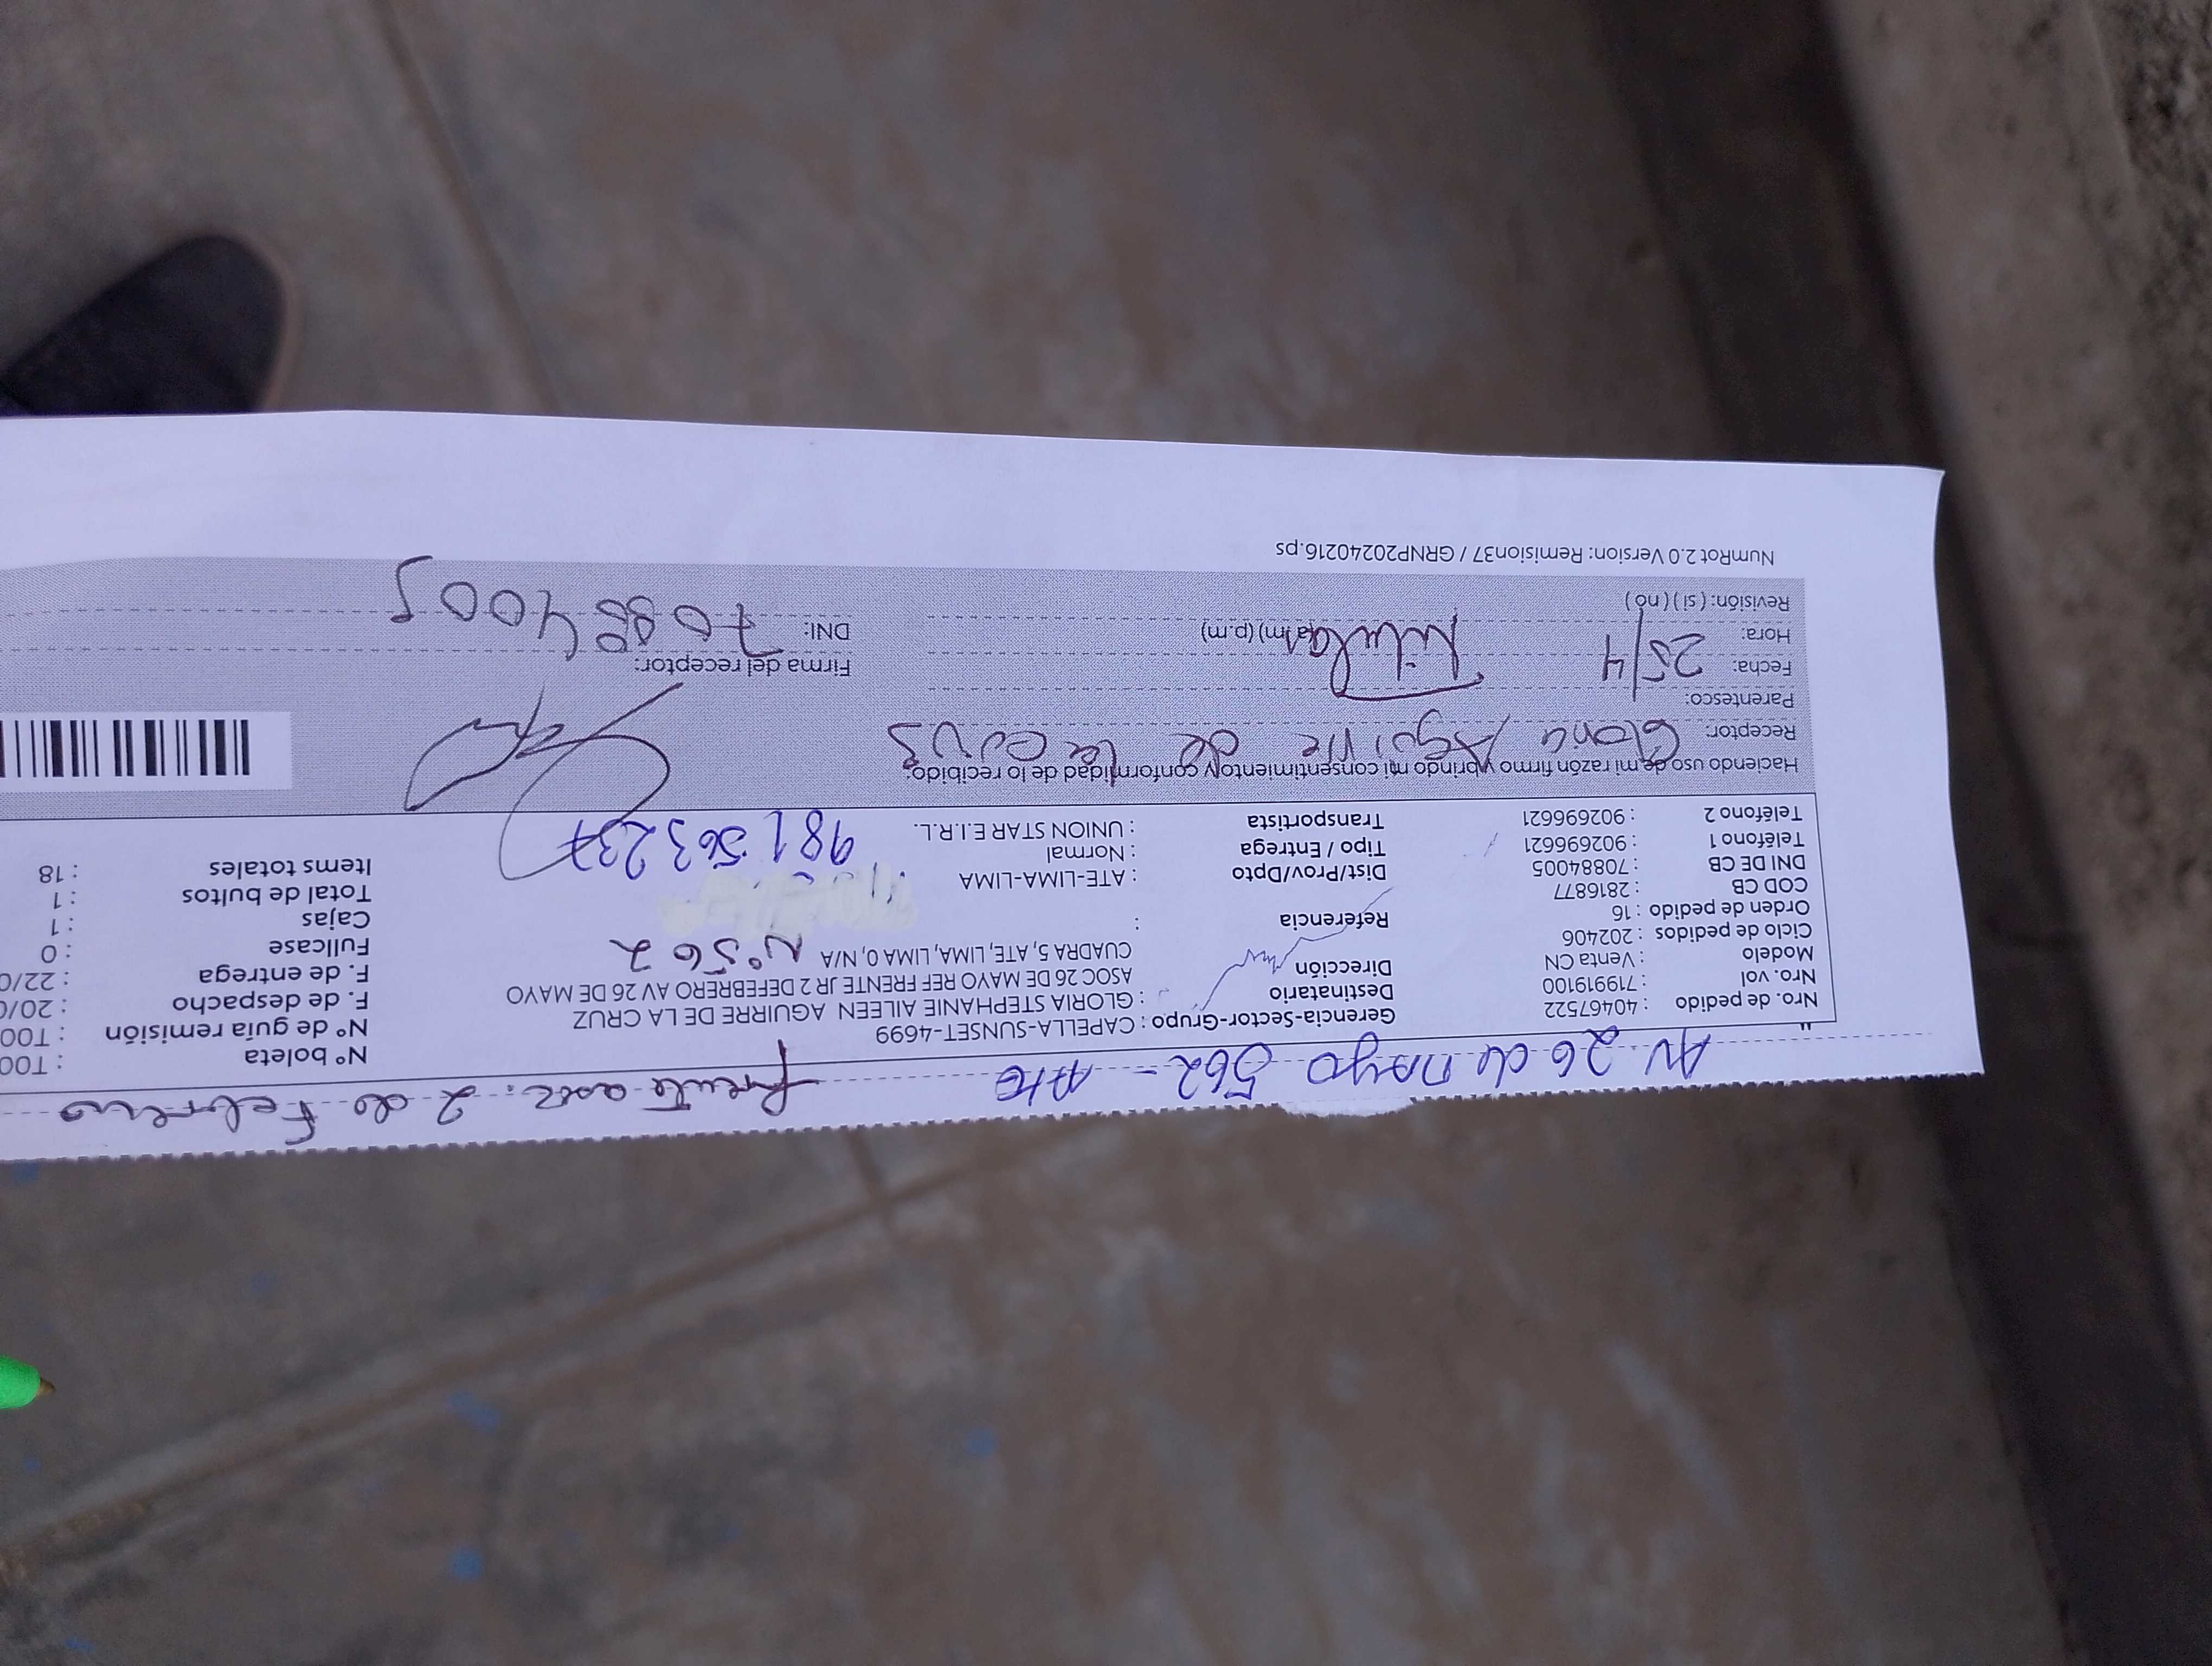 AV. 26 de mayo 562 - Ate frente asoc. 2 de Febrero
Nro. de pedido : 40467522
Nro. vol : 719919100
Modelo : Venta CN
Ciclo de pedidos : 202406
Orden de pedido : 16
COD CB : 2816877
DNI DE CB : 70884005
Teléfono 1 : 902696621
Teléfono 2 : 902696621
Gerencia-Sector-Grupo : CAPELLA-SUNSET-4699
Destinatario : GLORIA STEPHANIE AILEEN AGUIRRE DE LA CRUZ
Dirección ASOC 26 DE MAYO REF FRENTE JR 2 DEFEBRERO AV 26 DE MAYO
CUADRA 5, ATE, LIMA, LIMA 0, N/A N° 562
Referencia :
Dist/Prov/Dpto : ATE-LIMA-LIMA
Tipo / Entrega : Normal
981563237
Transportista : UNION STAR E.I.R.L.
N° boleta : T00
N° de guía remisión : T00
F. de despacho : 20/0
F. de entrega : 22/0
Fullcase : 0
Cajas : 1
Total de bultos : 1
Items totales : 18
Haciendo uso de mi razón firmo y brindo mi consentimiento y conformidad de lo recibido:
Receptor: Gloria Aguirre de la cruz
Parentesco: Titular
Fecha: 25/4
Hora: (a.m) (p.m)
Revisión: ( si ) ( no )
Firma del receptor:
DNI: 70884005
NumRot 2.0 Version: Remision37 / GRNP20240216.ps